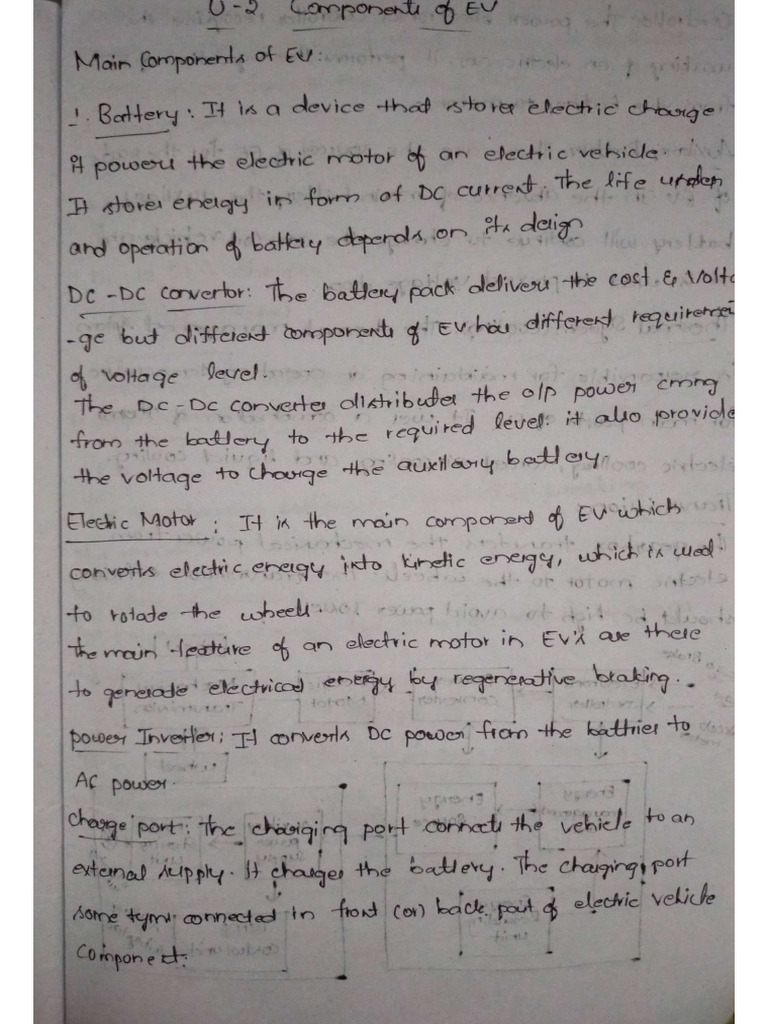 U-2 Components of EV
Main Components of EV:
1. Battery: It is a device that stores electric charge
it powers the electric motor of an electric vehicle.
It stores energy in form of DC current. The life
and operation of battery depends on its deign
DC-DC convertor: The battery pack delivers the cost & volta
-ge but different components of EV has different requiremen
of voltage level.
The DC-DC converter distributes the o/p power cmng
from the battery to the required level. it also provide
the voltage to charge the auxilary battery.
Electric Motor: It is the main component of EV which
converts electric energy into kinetic energy, which is used
to rotate the wheels.
The main feature of an electric motor in EV's are these
to generate electrical energy by regenerative braking.
power Inverter: It converts DC power from the battries to
AC power.
Charge port: The chariging port connects the vehicle to an
external supply. It charges the battery. The charging port
some tyms connected in front (or) back part of electric vehicle
component: